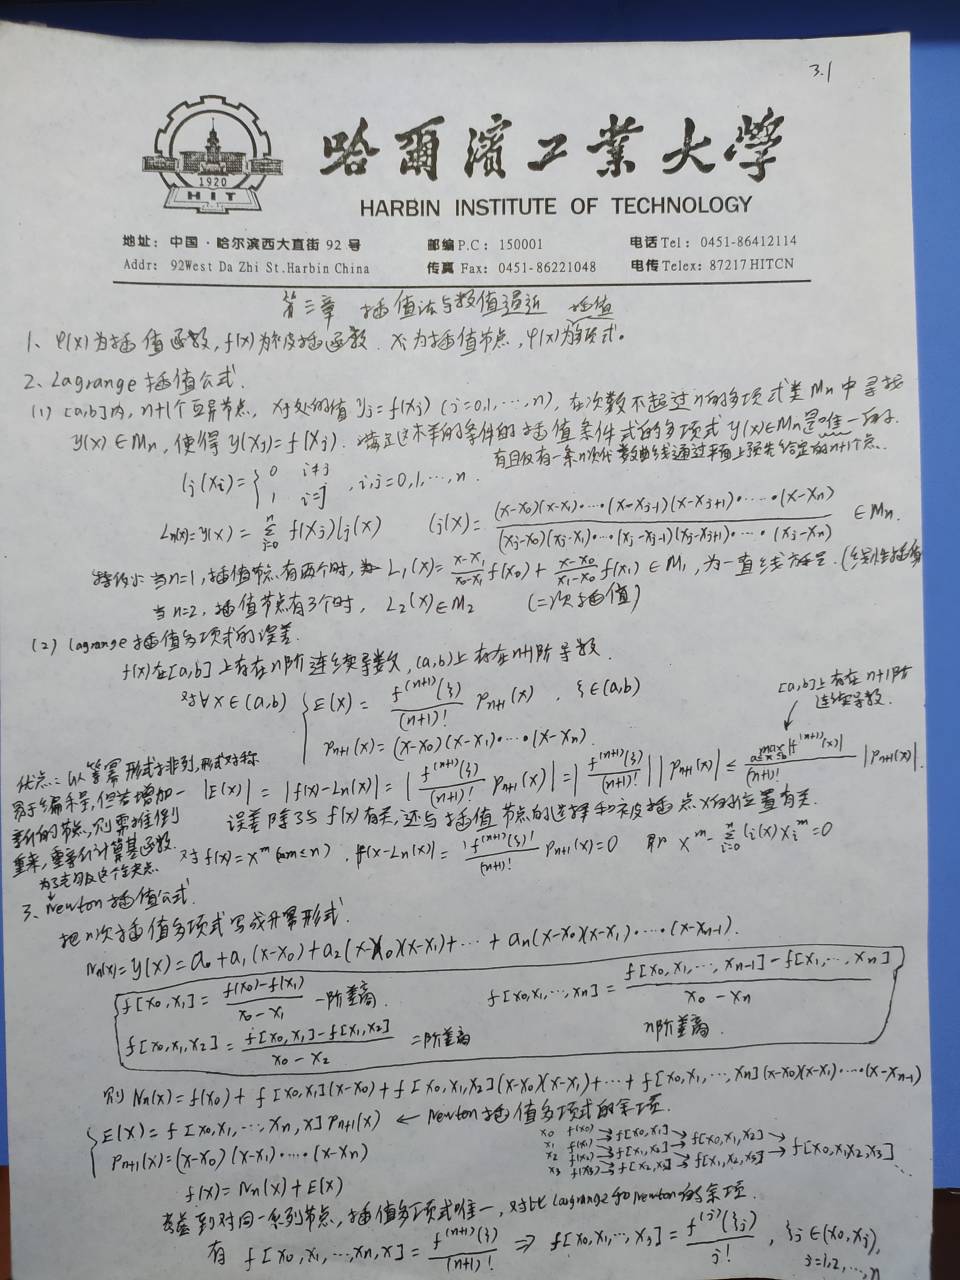 3.1
1920
HIT
哈爾濱工業大學
HARBIN INSTITUTE OF TECHNOLOGY
地址: 中国·哈尔滨西大直街 92 号 邮编P.C: 150001 电话Tel: 0451-86412114
Addr: 92West Da Zhi St.Harbin China 传真 Fax: 0451-86221048 电传 Telex: 87217HITCN
第三章 插值法与数值逼近 插值
1、φ(x)为插值函数,f(x)为被插函数. xi为插值节点,φ(x)为多项式。
2、Lagrange插值公式.
(1) [a,b]内, n+1个互异节点, xj处的值 yj=f(xj) (j=0,1,…,n), 在次数不超过n的多项式类Mn中寻找
y(x)∈Mn, 使得 y(xj)=f(xj). 满足这样的条件的插值条件式的多项式 y(x)∈Mn是唯一存在.
有且仅有一条n次代数曲线通过平面上预先给定的n+1个点.
lj(xi)={0 i≠j 1 i=j , i,j=0,1,…,n.
Ln(x)=y(x)=∑_{j=0}^{n} f(xj)lj(x) lj(x)=(x-x0)(x-x1)·…·(x-xj-1)(x-xj+1)·…·(x-xn)/(xj-x0)(xj-x1)·…·(xj-xj-1)(xj-xj+1)·…·(xj-xn) ∈Mn.
特例: 当n=1,插值节点有两个时, L1(x)=(x-x1)/(x0-x1) f(x0)+(x-x0)/(x1-x0) f(x1)∈M1,为一直线方程.(线性插值)
当n=2, 插值节点有3个时, L2(x)∈M2 (二次插值)
(2) Lagrange插值多项式的误差.
f(x)在[a,b]上存在n阶连续导数,(a,b)上存在n+1阶导数.
对∀x∈(a,b) {E(x)=f^(n+1)(ξ)/(n+1)! Pn+1(x) , ξ∈(a,b)
Pn+1(x)=(x-x0)(x-x1)·…·(x-xn).
[a,b]上存在n+1阶
连续导数.
|E(x)|=|f(x)-Ln(x)|=|f^(n+1)(ξ)/(n+1)! Pn+1(x)|=|f^(n+1)(ξ)/(n+1)!||Pn+1(x)|≤ max_{a≤x≤b}|f^(n+1)(x)|/(n+1)! |Pn+1(x)|.
误差除了与f(x)有关,还与插值节点的选择和被插点x的位置有关.
对f(x)=x^m (m≤n) , f(x-Ln(x)|=f^(n+1)(ξ)/(n+1)! Pn+1(x)=0 即 x^m-∑_{i=0}^{n} li(x)xi^m=0
优点: 以等幂形式排列,形式对称
易于编程,但若增加一
新的节点,则需推倒
重来,重新计算基函数.
为了克服这个缺点
3、Newton插值公式.
把n次插值多项式写成升幂形式.
Nn(x)=y(x)=a0+a1(x-x0)+a2(x-x0)(x-x1)+…+an(x-x0)(x-x1)·…·(x-xn-1).
f[x0,x1]=(f(x0)-f(x1))/(x0-x1) 一阶差商. f[x0,x1,…,xn]=(f[x0,x1,…,xn-1]-f[x1,…,xn])/(x0-xn)
f[x0,x1,x2]=(f[x0,x1]-f[x1,x2])/(x0-x2) 二阶差商 n阶差商
则 Nn(x)=f(x0)+f[x0,x1](x-x0)+f[x0,x1,x2](x-x0)(x-x1)+…+f[x0,x1,…,xn](x-x0)(x-x1)·…·(x-xn-1)
{E(x)=f[x0,x1,…,xn,x]Pn+1(x) ← Newton插值多项式的余项.
Pn+1(x)=(x-x0)(x-x1)·…·(x-xn)
x0 f(x0)
x1 f(x1)→f[x0,x1]
x2 f(x2)→f[x1,x2]→f[x0,x1,x2]
x3 f(x3)→f[x2,x3]→f[x1,x2,x3]→f[x0,x1,x2,x3]
f(x)=Nn(x)+E(x)
考虑到对同一系列节点,插值多项式唯一,对比Lagrange和Newton的余项.
有 f[x0,x1,…,xn,x]=f^(n+1)(ξ)/(n+1)! ⇒ f[x0,x1,…,xj]=f^(j)(ξj)/j! , ξj∈(x0,xj),
j=1,2,…,n